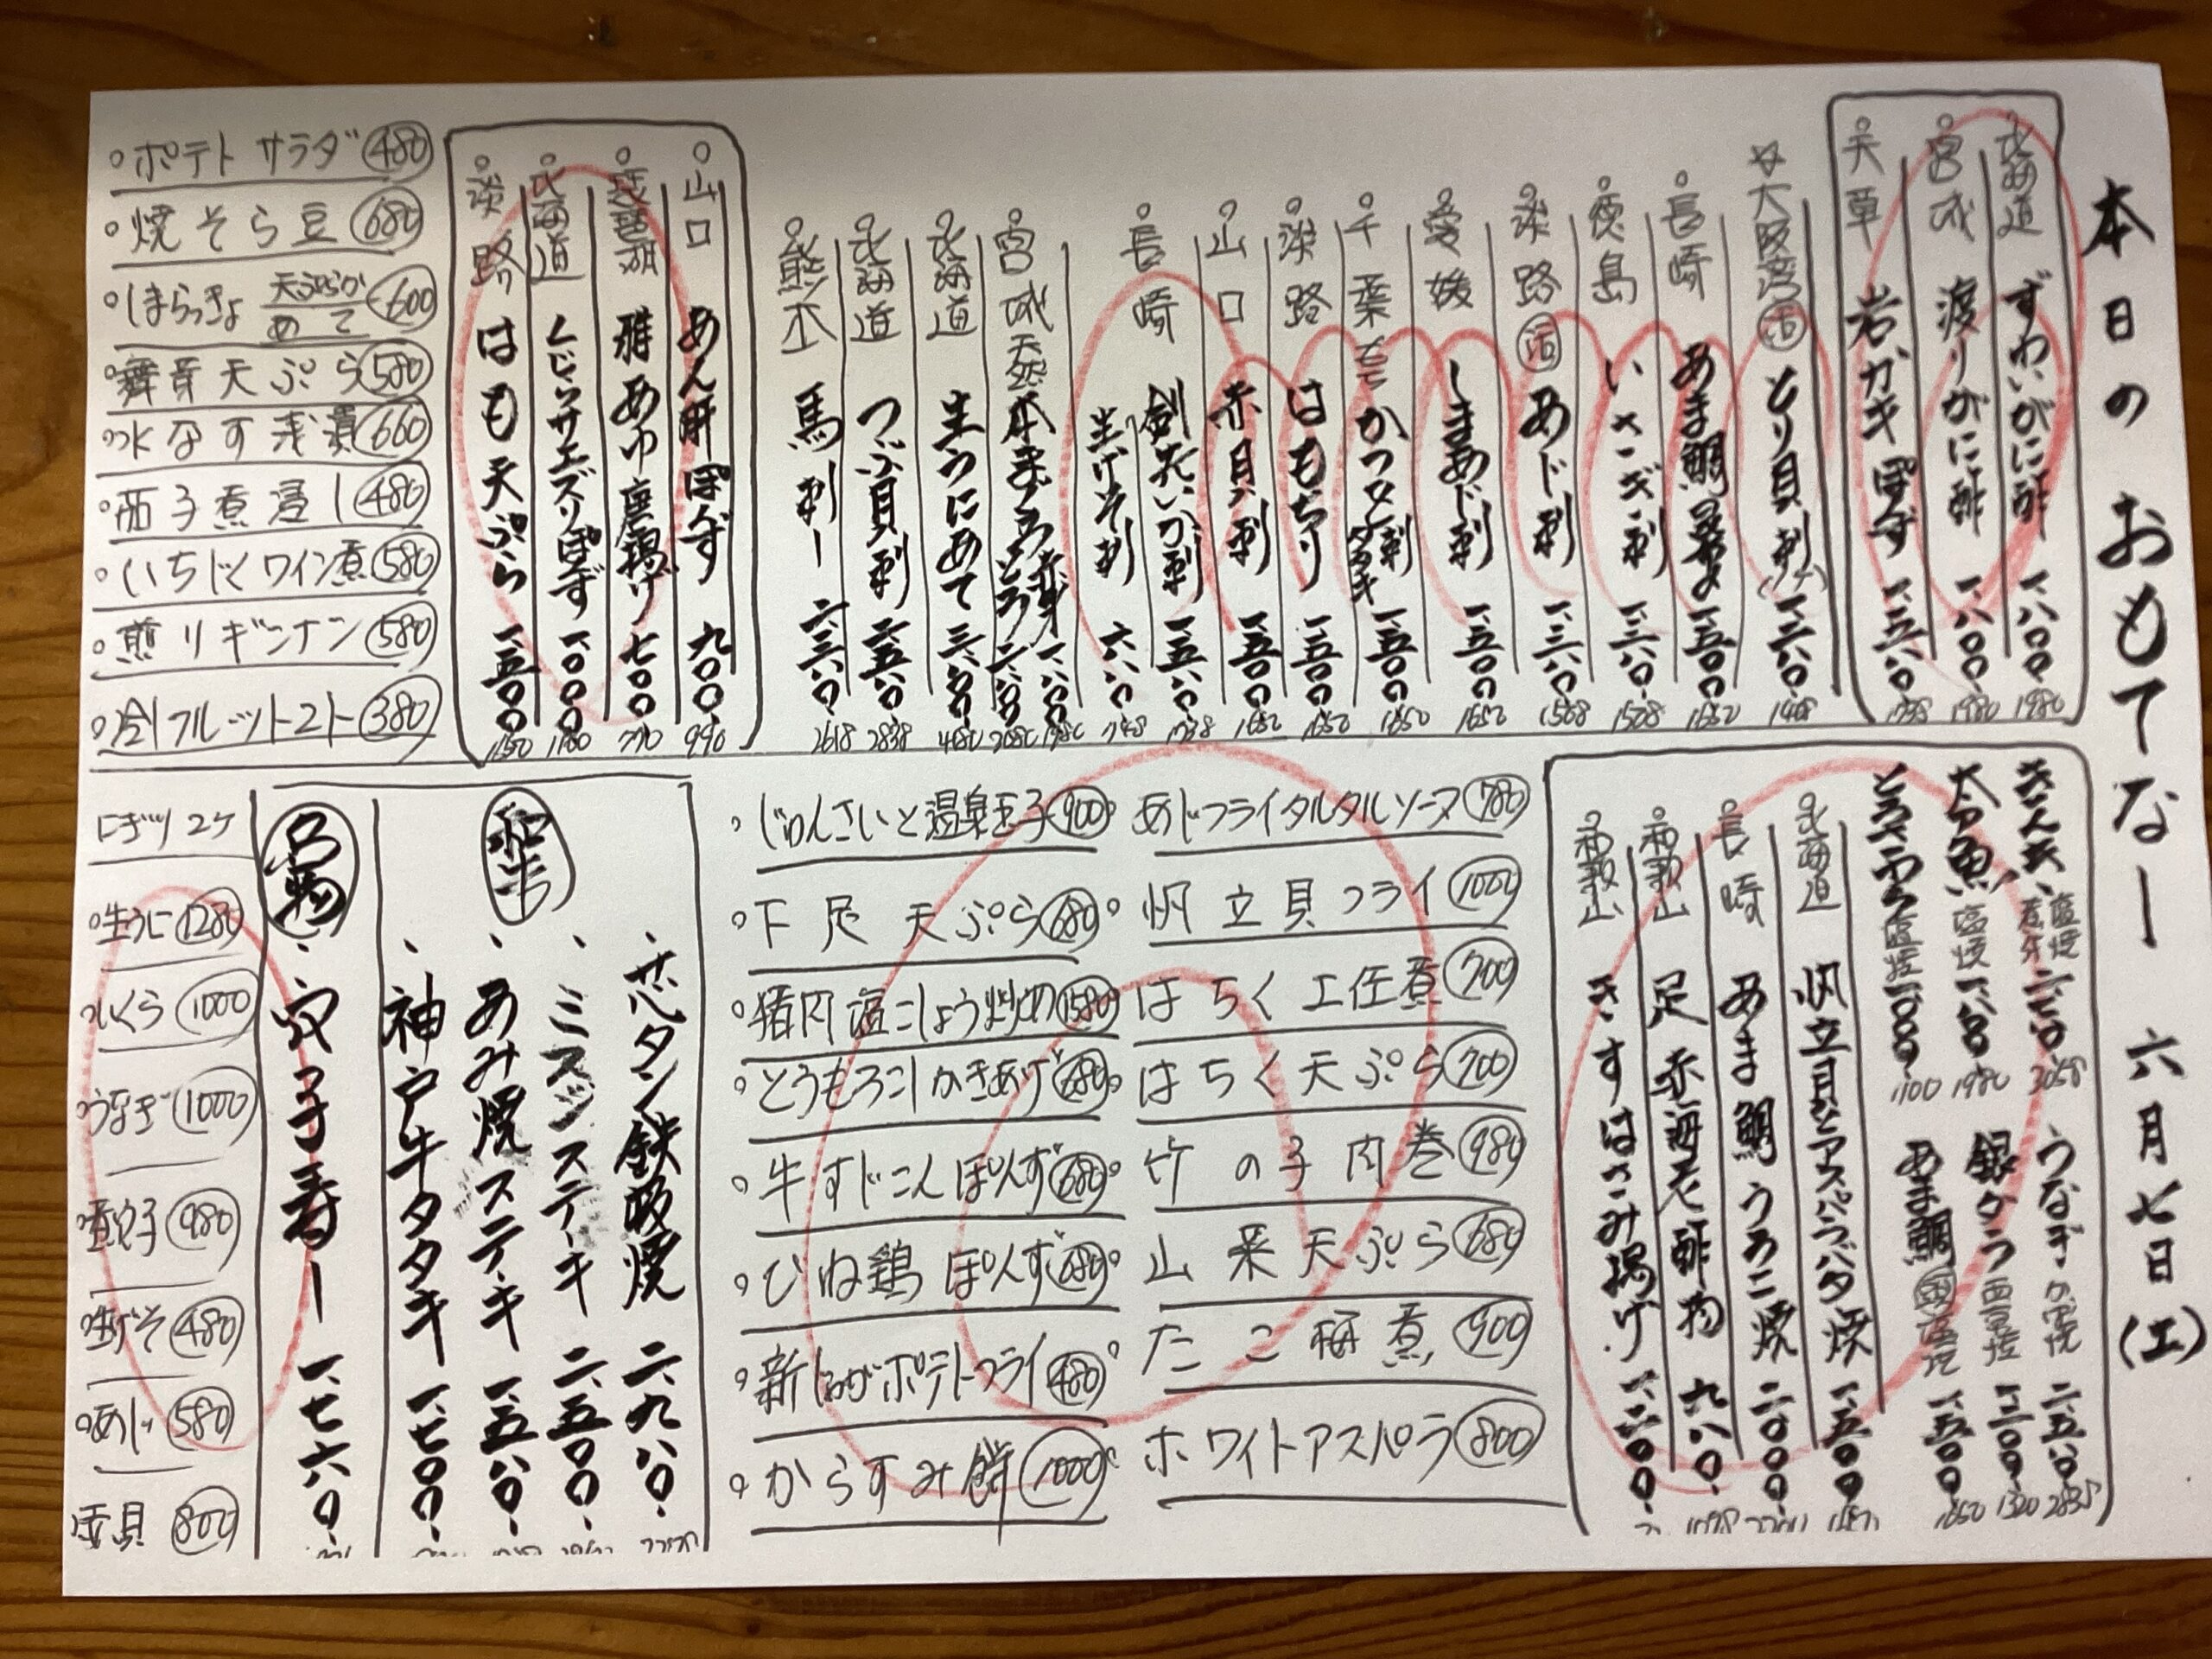 本日のおもてなし 六月七日(土)
北海道 ずわいがに酢 一、八〇〇、 1980
宮城 渡りがに酢 一、八〇〇、 1980
天草 岩ガキぽず 一、五八〇、
☆大阪湾 活 とり貝刺 一、二八〇、 1408
長崎 あま鯛 一、五〇〇、 1650
徳島 いさぎ刺 一、三八〇、 1518
淡路 活 あじ刺 一、三八〇、
愛媛 しまあじ刺 一、五〇〇、 1650
千葉 かつを刺 タタキ 一、五〇〇、 1650
淡路 はもちり 一、五〇〇、 1650
山口 赤貝刺 一、五〇〇、 1650
長崎 剣先いか刺 一、五八〇、 1738
生げそ刺 六八〇、 748
宮城 天然本まぐろ 赤身 一、八〇〇、 1980
とろ 二、八〇〇、 3080
北海道 生うにあて
北海道 つぶ貝刺 二、五八〇、 2838
熊本 馬刺し 二、三八〇、 2618
山口 あん肝ぽんず 九〇〇、 990
琵琶湖 稚あゆ唐揚げ 七〇〇 770
北海道 くじらサエズリぽず 一、〇〇〇、 1100
淡路 はも天ぷら 一、五〇〇、
・ポテトサラダ 480
・焼そら豆 680
・しまらっきょ 天ぷらか あて 600
・舞茸天ぷら 580
・水なす浅漬 660
・茄子煮浸し 480
・いちじくワイン煮 580
・煎りギンナン 580
・冷フルーツトマト 380
きんき、塩焼 煮付 二、七八〇 3058
太刀魚 塩焼 一、八〇〇 1980
とろさわら 塩焼 一、〇〇〇、 1100
うなぎの 二、五八〇、
銀タラ 西京焼 一、二〇〇、 1320
あま鯛 塩焼 一、五〇〇 1650
北海道 帆立貝とアスパラバタ焼 一、五〇〇
長崎 あま鯛うろこ焼 二、〇〇〇、
和歌山 足赤海老酢物 九八〇、
和歌山 きすはさみ揚げ 一、二〇〇、
・あじフライタルタルソース 780
・帆立貝フライ 1000
・はちく土佐煮 700
・はちく天ぷら 700
・竹の子肉巻 980
・山菜天ぷら 680
・たこ梅煮 900
・ホワイトアスパラ 800
・じゅんさいと温泉玉子 900
・下足天ぷら 680
・猪肉塩こしょう炒め 1580
・とうもろこしかきあげ 680
・牛すじこんぽんず 680
・ひね鶏ぽんず 680
・新じゃがポテトフライ 480
・からすみ餅 1000
和牛
、芯タン鉄板焼 二、九八〇、
、ミスジステーキ 二、五〇〇、
、あみ焼ステーキ 一、五八〇、
、神戸牛タタキ 一、七〇〇、
名物
、穴子寿し 一、七六〇、
にぎり2ケ
・生うに 1280
・いくら 1000
・うなぎ 1000
・煮穴子 980
・生げそ 480
・あじ 580
貝 800